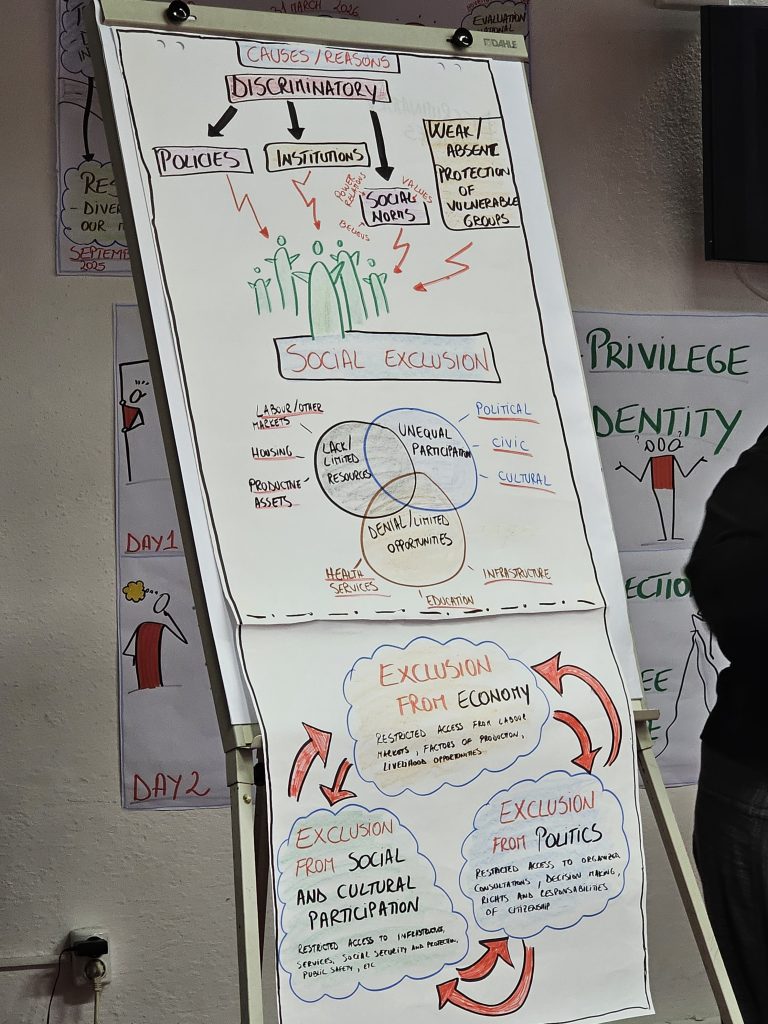 CAUSES/REASONS
DISCRIMINATORY
POLICIES
INSTITUTIONS
SOCIAL
NORMS
POWER
RELATIONS
VALUES
BELIEFS
WEAK/
ABSENT
PROTECTION
OF
VULNERABLE
GROUPS
SOCIAL EXCLUSION
LABOUR/OTHER
MARKETS
HOUSING
PRODUCTIVE
ASSETS
LACK/
LIMITED
RESOURCES
UNEQUAL
PARTICIPATION
POLITICAL
CIVIC
CULTURAL
DENIAL/LIMITED
OPPORTUNITIES
HEALTH
SERVICES
EDUCATION
INFRASTRUCTURE
EXCLUSION
FROM ECONOMY
RESTRICTED ACCESS FROM LABOUR
MARKETS, FACTORS OF PRODUCTION,
LIVELIHOOD OPPORTUNITIES
EXCLUSION
FROM SOCIAL
AND CULTURAL
PARTICIPATION
RESTRICTED ACCESS TO
SERVICES, SOCIAL SECURITY AND PROTECTION,
PUBLIC SAFETY, ETC
EXCLUSION
FROM POLITICS
RESTRICTED ACCESS TO ORGANIZER
CONSULTATIONS/DECISION MAKING,
RIGHTS AND RESPONSABILITIES
OF CITIZENSHIP
DAHLE
MARCH 2026
EVALUATION
RES
- DIVER
OUR
SEPTEMB
2025
DAY1
DAY2
PRIVILEGE
DENTITY
ECTIO
EE